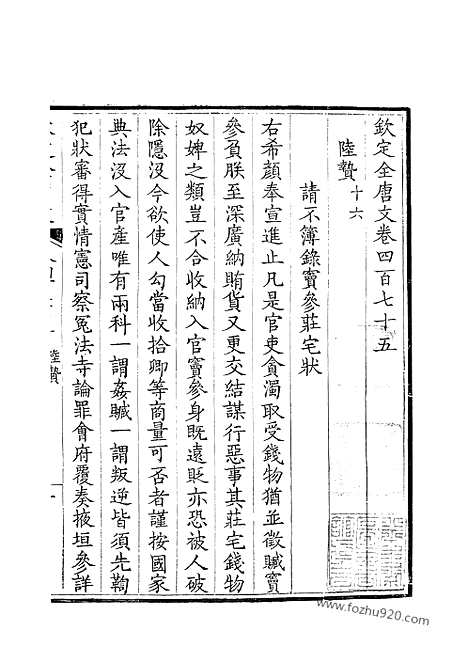 欽定全唐文卷四百七十五
陸贄十六
請不簿錄竇參莊宅狀
右希顏奉宣進止凡是官吏貪濁取受錢物猶並徵贓竇
參負朕至深廣納賄貨又更交結謀行惡事其莊宅錢物
奴婢之類豈不合收納入官竇參身既遠貶亦恐被人破
除隱沒今欲使人勾當收拾卿等商量可否者謹按國家
典法沒入官產唯有兩科一謂姦贓一謂叛逆皆須先鞫
犯狀審得實情憲司察冤法寺論罪會府覆奏掖垣參詳
陸贄
一
www.fozhu920.com